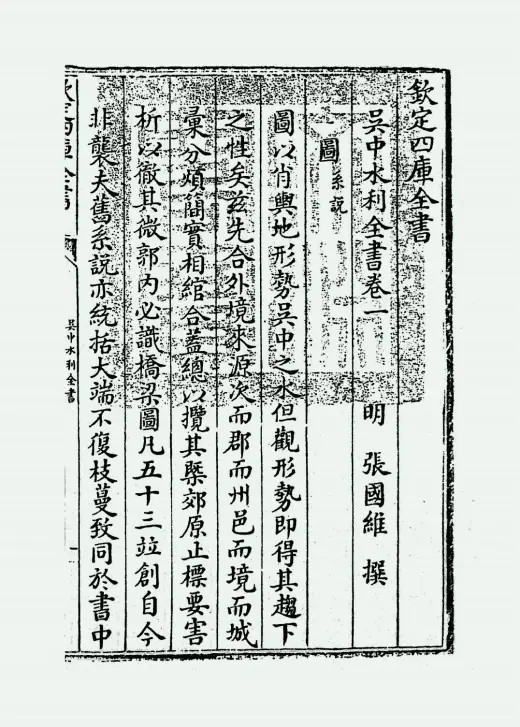 欽定四庫全書
吳中水利全書卷一
明 張國維 撰
圖 系說
圖以肖輿地形勢吳中之水但觀形勢即得其趨下
之性矣茲先合外境來源次而郡而州邑而境而城
彙分煩簡實相綰合蓋總以攬其槩郊原止標要害
析以徹其微郭內必識橋梁圖凡五十三竝創自今
非襲夫舊系說亦統括大端不復枝蔓致同於書中
吳中水利全書
一